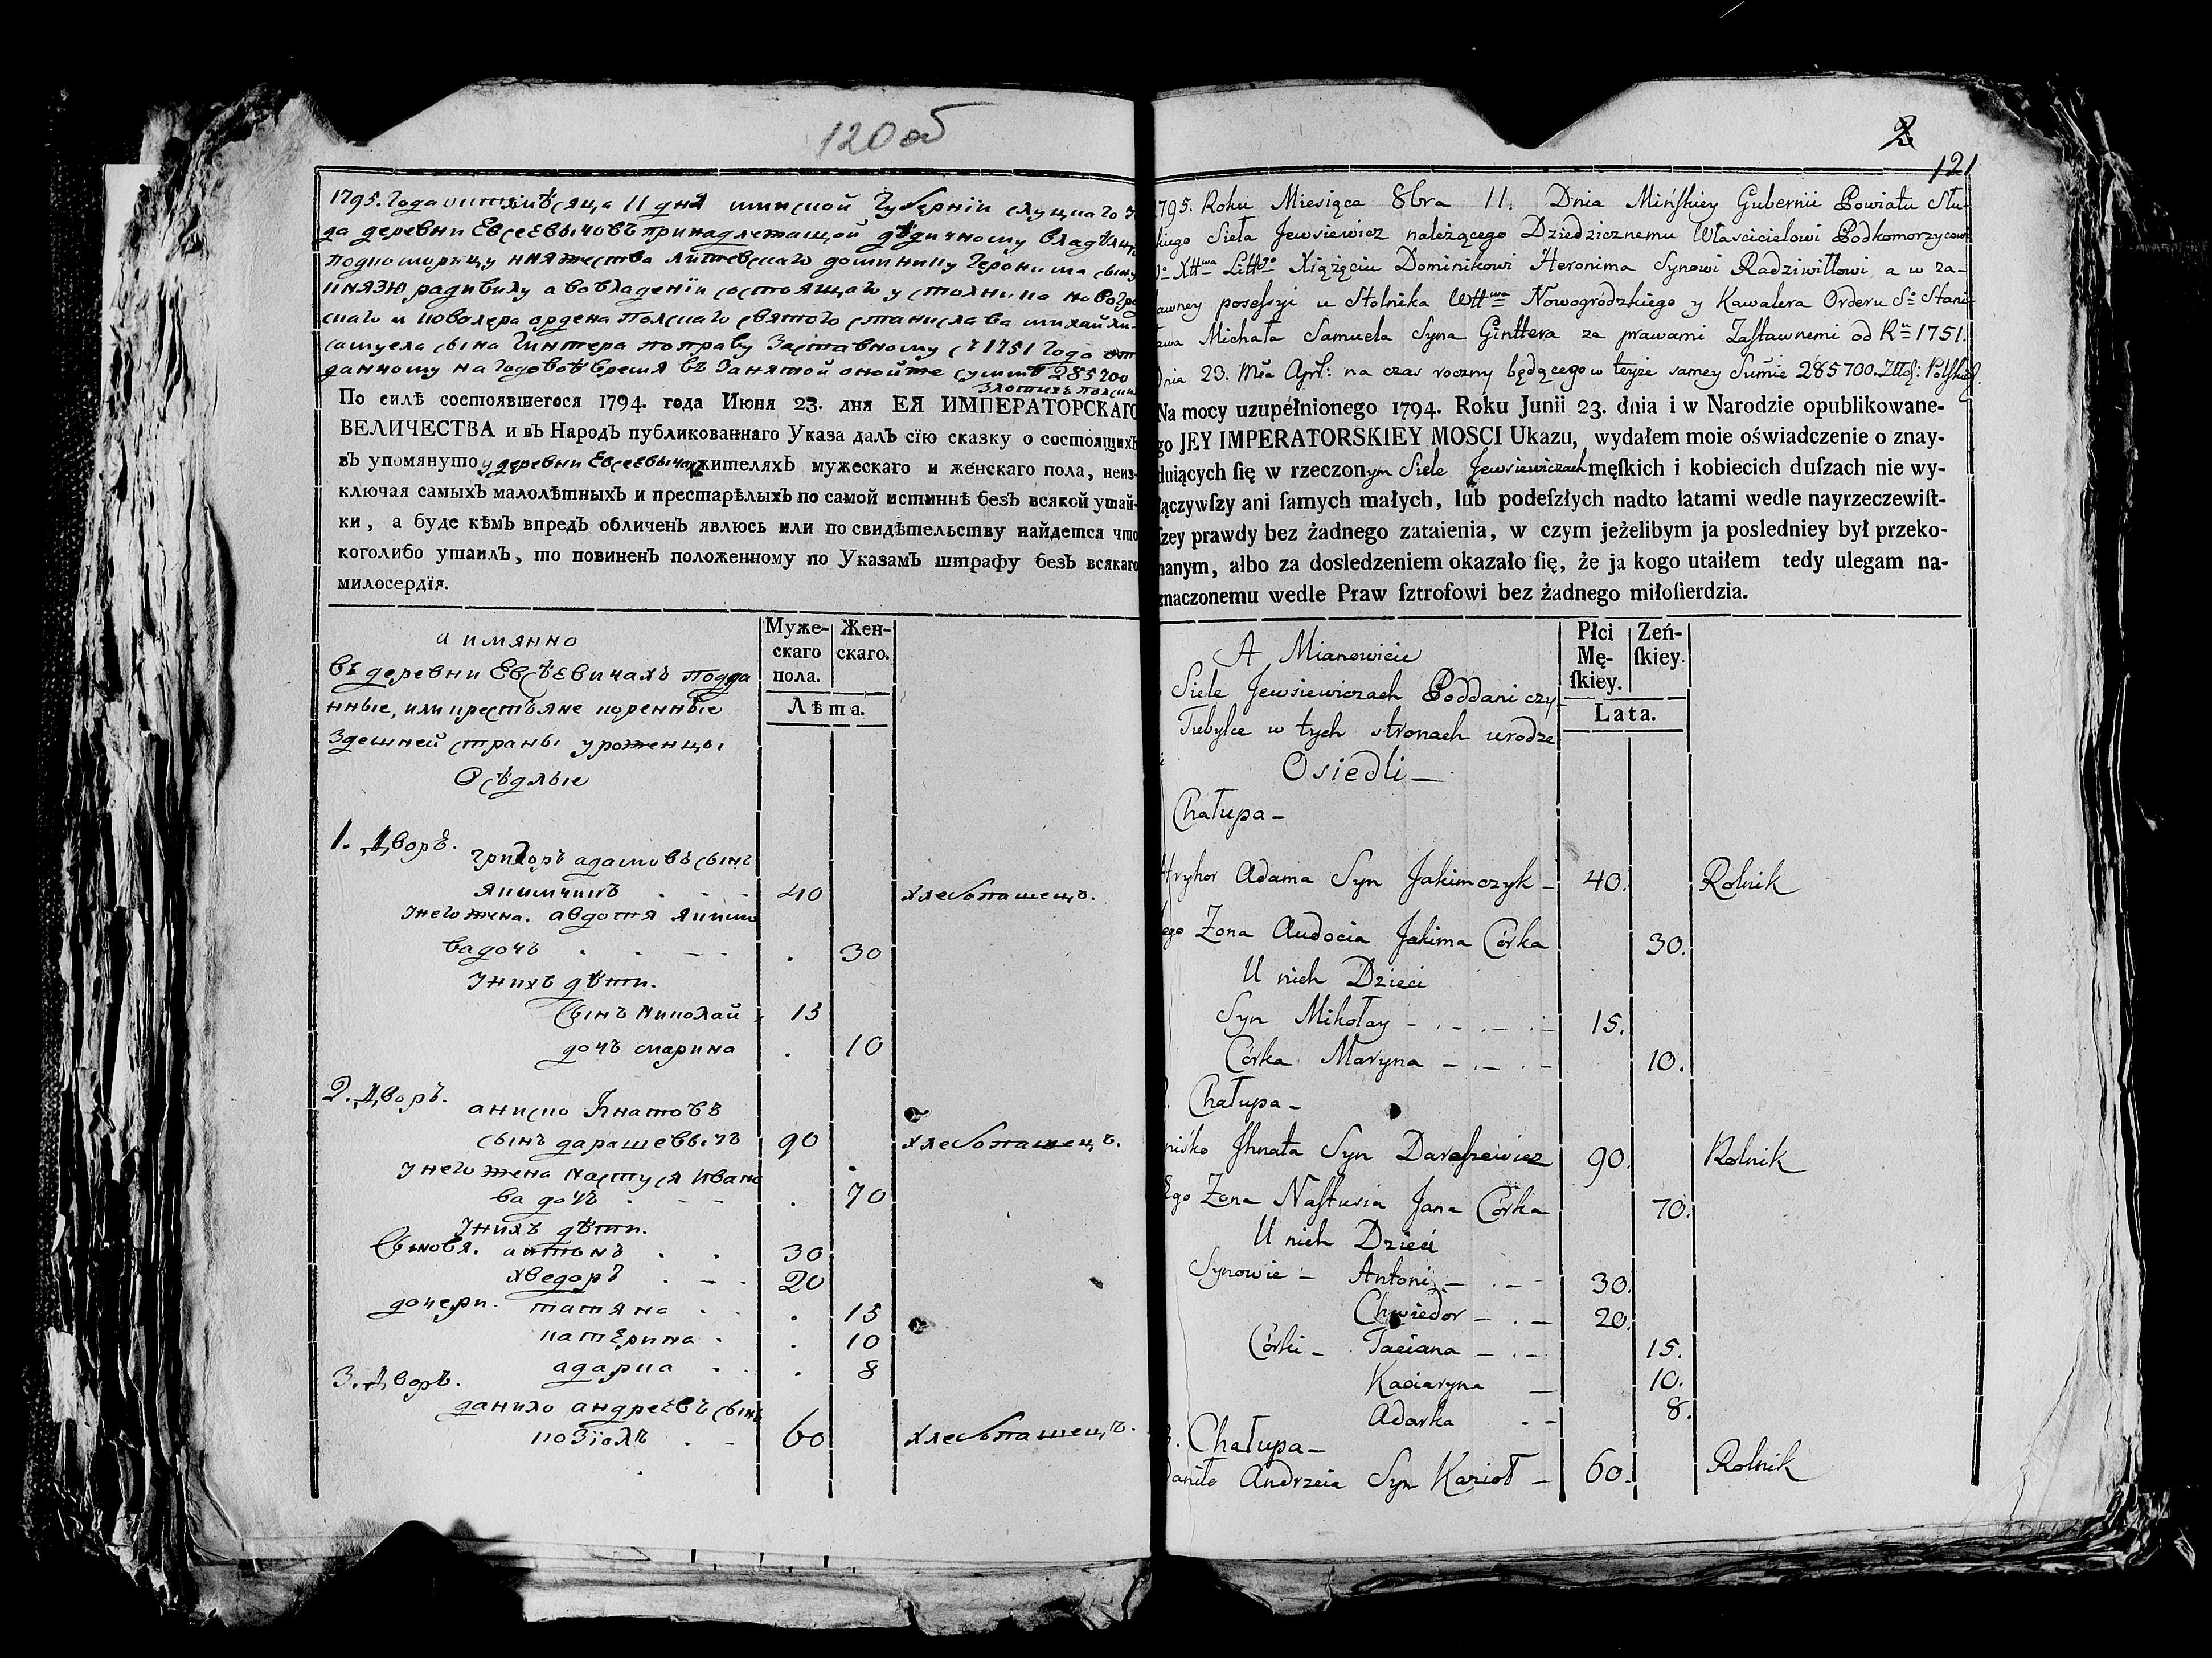 120 об
1795. Года октяля мѣсяца 11 дня минской Губерніи слуцкаго
да деревни Евсеевычовъ принадлежащой дѣдичному владѣльцу
подкоморыцу княжества литевскаго доминику Геронима сыну
князю радивилу а во владенїи состоящаго у столника новогро
скаго и ковалера ордена полскаго святого станислава михайла
самуела сына Гинтера по праву заставному съ 1751 года от
данному на годовоѣ время въ занятой оной же суммѣ 285700
злотихъ полских
По силѣ состоявшегося 1794. года Июня 23. дня ЕЯ ИМПЕРАТОРСКАГО
ВЕЛИЧЕСТВА и въ Народъ публикованнаго Указа далъ сїю сказку о состоящихъ
въ упомянутоу деревни Евсеевычах жителяхъ мужескаго и женскаго пола, неиз-
ключая самыхъ малолѣтныхъ и престарѣлыхъ по самой истиннѣ безъ всякой утай-
ки, а буде кѣмъ впредъ обличенъ явлюсь или по свидѣтельству найдется что
коголибо утаилъ, то повиненъ положенному по Указамъ штрафу безъ всякаго
милосердїя.
а имянно
Муже-
скаго
пола.
Жен-
скаго.
Лѣта.
въ деревни Евсѣевичахъ подда
нные, или крестьяне коренные
здешней страны уроженцы
Осѣдлые
1. Дворъ.
григоръ адамовъ сынъ
якимчикъ 40 хлебопашецъ.
у него жена. авдотя якимо
ва дочъ 30
у нихъ дѣти.
сынъ николай 15
дочъ марина 10
2. Дворъ.
аниско Ігнатовъ
сынъ дарашевычъ 90 хлебопашецъ.
у него жена настуся ивано
ва дочъ 70
у нихъ дѣти.
сыновя. антонъ 30
хведоръ 20
дочери. татяна 15
катѣрина 10
адарка 8
3. Дворъ.
данило андреевъ сынъ
козїолъ 60 хлебопашецъ.
2
121
795. Roku Miesiąca 8bra 11. Dnia Mińskiey Gubernii Powiatu Słu-
kiego Sieła Jewsiewicz należącego Dziedzicznemu Włascicielowi Podkomorzycowi
Xttwa Littgo Xiążęciu Dominikowi Heronima Synowi Radziwiłłowi, a w za-
awney posessyi u Stolnika Wttwa Nowogródzkiego y Kawalera Orderu So Stani-
awa Michała Samuela Syna Ginttera za prawami Zastawnemi od Ru 1751.
Dnia 23. Mca Aprl: na czas roczny będącego w teyże samey Sumie 285700. Złło: Polskich.
Na mocy uzupéłnionego 1794. Roku Junii 23. dnia i w Narodzie opublikowane-
go JEY IMPERATORSKIEY MOSCI Ukazu, wydałem moie oświadczenie o znay-
duiących ſię w rzeczonym Siele Jewsiewiczach męſkich i kobiecich duſzach nie wy-
łączywſzy ani ſamych małych, lub podeſzłych nadto latami wedle nayrzeczewiſt-
ſzey prawdy bez żadnego zataienia, w czym jeżelibym ja posledniey był przeko-
nanym, albo za dosledzeniem okazało ſię, że ja kogo utaiłem tedy ulegam na-
znaczonemu wedle Praw ſztrofowi bez żadnego miłoſierdzia.
A Mianowicie
Płci
Mę-
ſkiey.
Zeń-
ſkiey.
Lata.
Siele Jewsiewiczach Poddani czy
Tubylce w tych stronach urodze
Osiedli
Chałupa
Hryhor Adama Syn Jakimczyk 40. Rolnik
ego Zona Audocia Jakima Córka 30.
U nich Dzieci
Syn Mikołay 15.
Córka Maryna 10.
Chałupa
nisko Ihnata Syn Daraszewicz 90. Rolnik
ego Zona Nastusia Jana Córka 70.
U nich Dzieci
Synowie Antoni 30.
Chwiedor 20.
Córki Taciana 15.
Kaciaryna 10.
Adarka 8.
3. Chałupa
Daniło Andrzeia Syn Kozioł 60. Rolnik